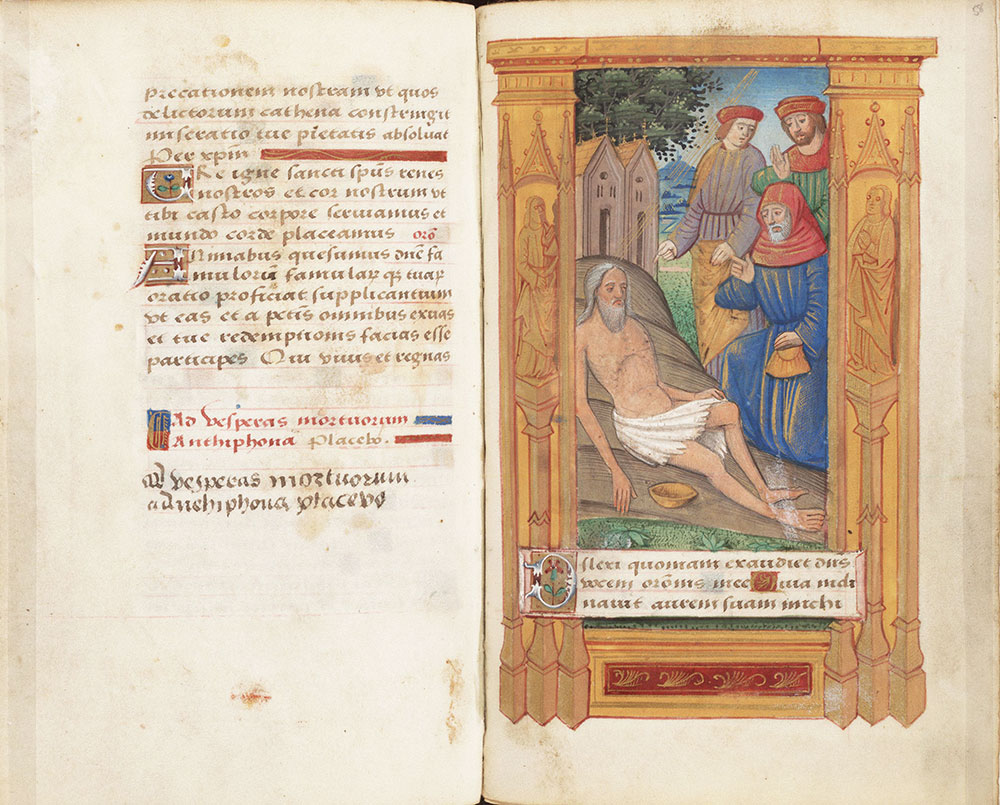 precationem nostram vt quos
delictorum cathena constringit
miseratio tue pietatis absoluat
Per xpm̄
Vre igne sancti spūs renes
nostros et cor nostrum vt
tibi casto corpore seruiamus et
mundo corde placeamus orō
Animabus quesumus dn̄e fa
mulorū famularūqꝫ tuarū
oratio proficiat supplicantium
vt eas et a pctis omnibus exuas
et tue redemptionis facias esse
participes Qui viuis et regnas
Ad vesperas mortuorum
Anthiphona Placebo.
Ad vesperas mortuorum
Anthiphona placebo
58
Dilexi quoniam exaudiet dn̄s
vocem orōnis mee Quia incli
nauit aurem suam michi